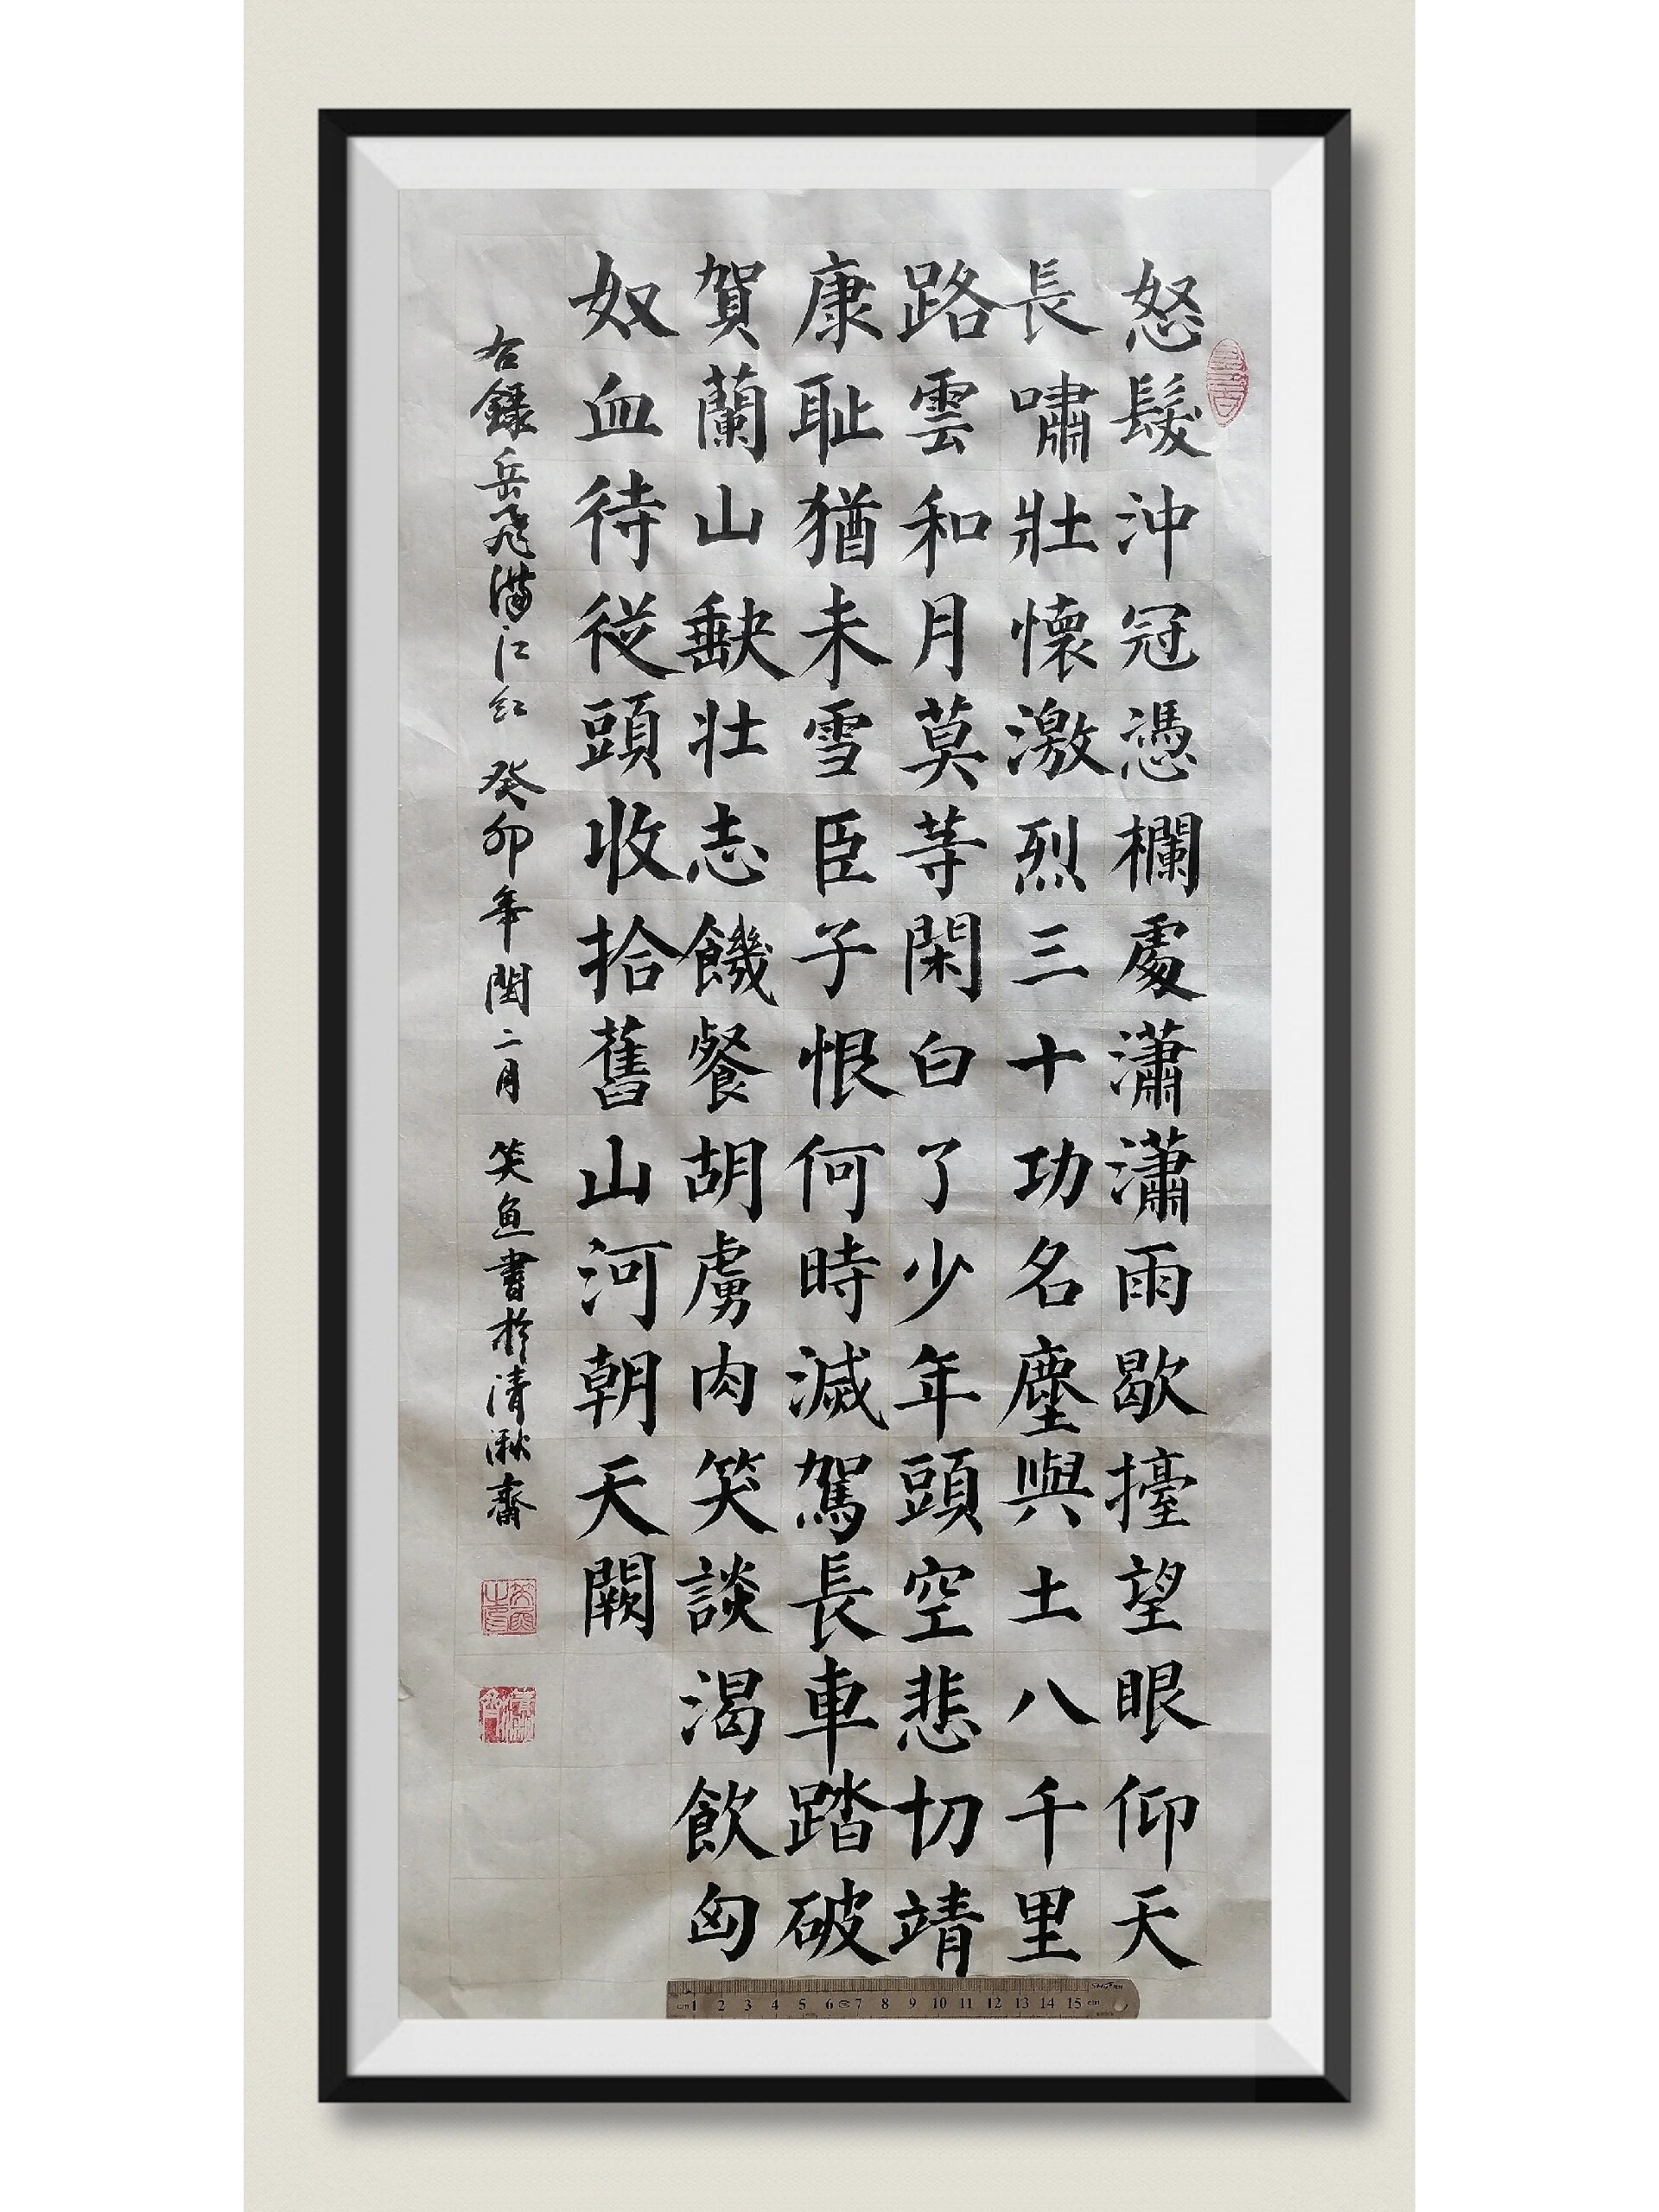 怒髮沖冠憑欄處瀟瀟雨歇擡望眼仰天
長嘯壯懷激烈三十功名塵與土八千里
路雲和月莫等閑白了少年頭空悲切靖
康耻猶未雪臣子恨何時滅駕長車踏破
賀蘭山缺壯志饑餐胡虜肉笑談渴飲匈
奴血待從頭收拾舊山河朝天闕
右錄岳飛滿江紅 癸卯年閏二月 笑魚書於清湫齋
cm 1 2 3 4 5 6 7 8 9 10 11 12 13 14 15 cm